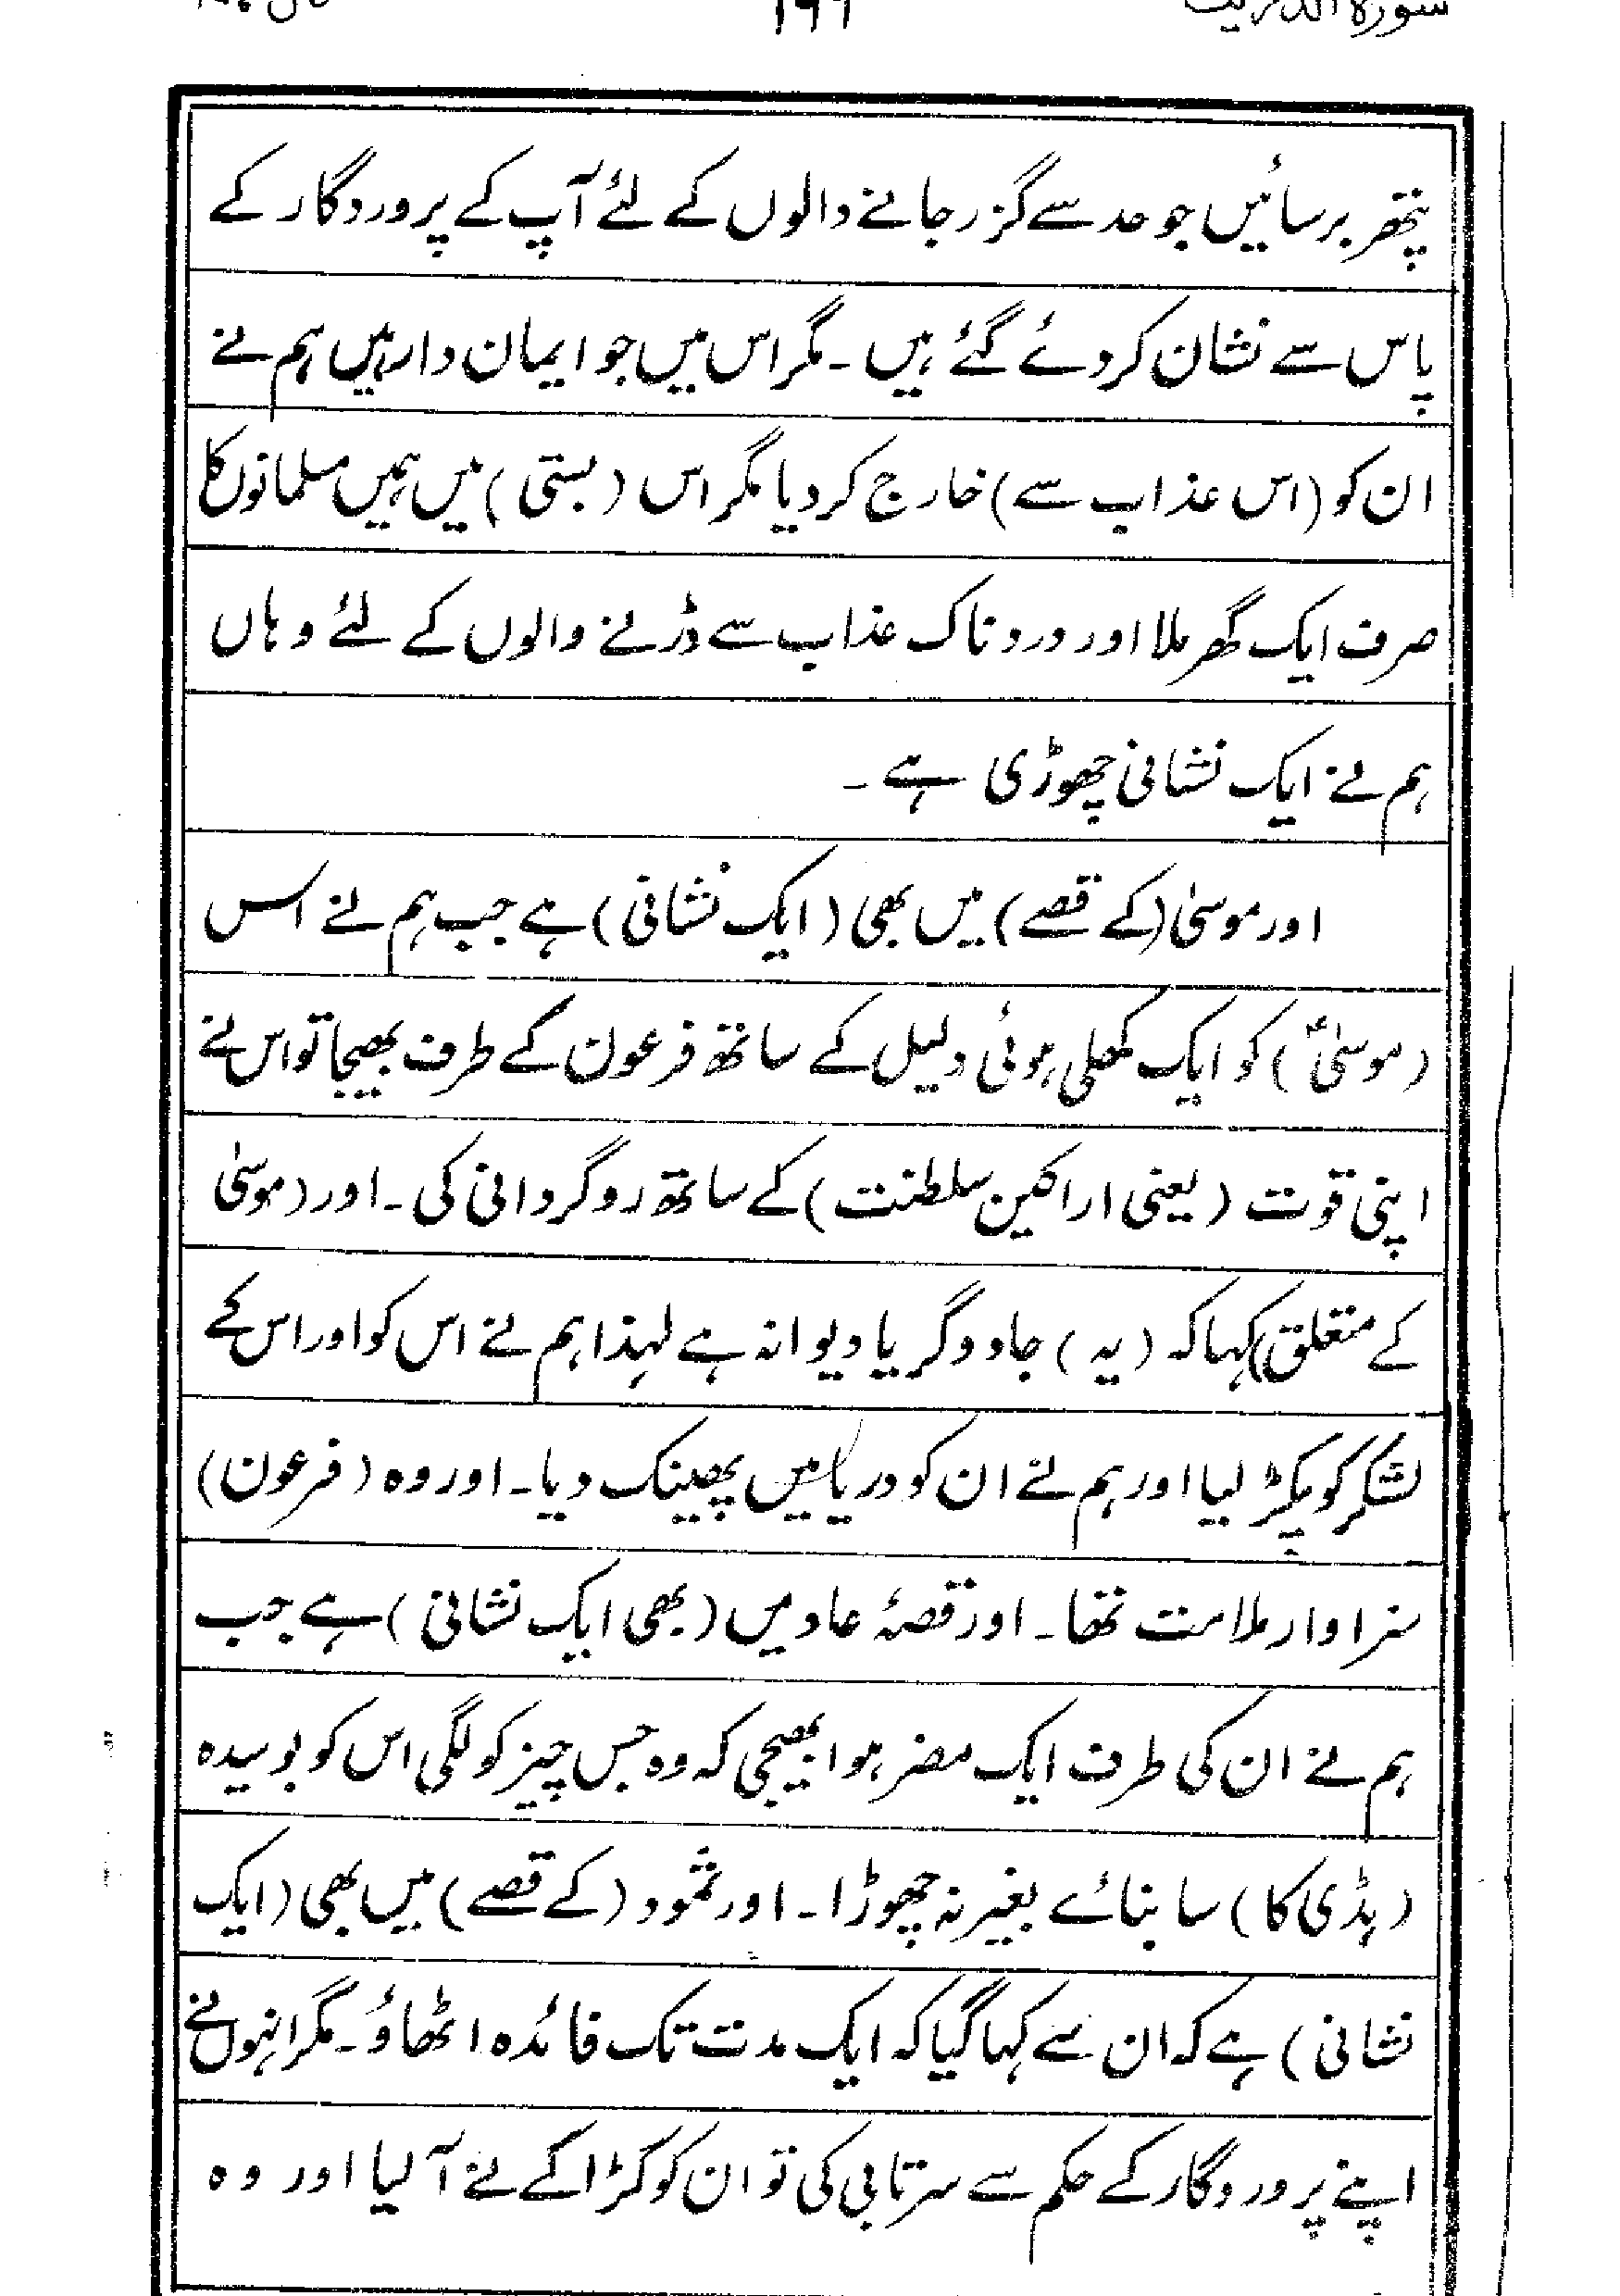 سورة الذريت
پتھر برسائیں جو حد سے گزر جانے والوں کے لئے آپ کے پروردگار کے
پاس سے نشان کر دئے گئے ہیں ۔ مگر اس میں جو ایمان دار ہیں ہم نے
ان کو (اس عذاب سے) خارج کر دیا مگر اس (بستی) میں ہمیں مسلمانوں کا
صرف ایک گھر ملا اور دردناک عذاب سے ڈرنے والوں کے لئے وہاں
ہم نے ایک نشانی چھوڑی ہے ۔
اور موسیٰ (کے قصے) میں بھی (ایک نشانی) ہے جب ہم نے اس
(موسیٰؑ) کو ایک کھلی ہوئی دلیل کے ساتھ فرعون کے طرف بھیجا تو اس نے
اپنی قوت (یعنی اراکین سلطنت) کے ساتھ روگردانی کی ۔ اور (موسیٰ
کے متعلق) کہا کہ (یہ) جادوگر یا دیوانہ ہے لہذا ہم نے اس کو اور اس کے
لشکر کو پکڑ لیا اور ہم نے ان کو دریا میں پھینک دیا ۔ اور وہ (فرعون)
سزاوار ملامت تھا ۔ اور قصۂ عاد میں (بھی ایک نشانی) ہے جب
ہم نے ان کی طرف ایک مضر ہوا بھیجی کہ وہ جس چیز کو لگی اس کو بوسیدہ
(ہڈی کا) سا بنائے بغیر نہ چھوڑا ۔ اور ثمود (کے قصے) میں بھی (ایک
نشانی) ہے کہ ان سے کہا گیا کہ ایک مدت تک فائدہ اٹھاؤ ۔ مگر انہوں نے
اپنے پروردگار کے حکم سے سرتابی کی تو ان کو کڑاکے نے آ لیا اور وہ